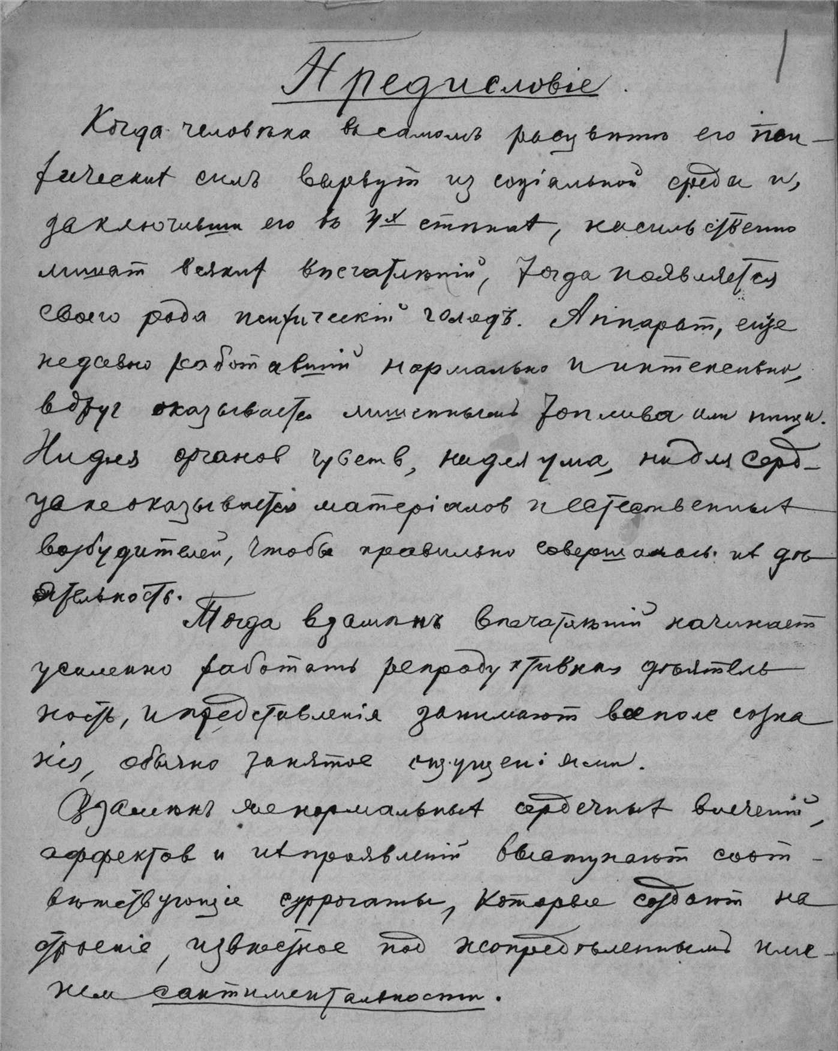 1
Предисловіе.
Когда человѣка въ самомъ расцвѣтѣ его пси-
хическихъ силъ вырвутъ из соціальной среды и,
заключивши его въ 4х стѣнахъ, насильственно
лишатъ всякихъ впечатлѣній, тогда появляется
своего рода психическій голодъ. Аппарат, еще
недавно работавшій нормально и интенсивно,
вдруг оказывается лишеннымъ топлива или пищи.
Ни для органов чувств, ни для ума, ни для серд-
ца не оказывается матеріалов и естественныхъ
возбудителей, чтобы правильно совершалась их дѣ
ятельность.
Тогда взамѣнъ впечатлѣній начинает
усиленно работать репродуктивная дѣятель
ность, и представленія занимают все поле созна
нія, обычно занятое ощущеніями.
Взамѣнъ же нормальныхъ сердечныхъ влеченій,
аффектов и ихъ проявленій выступают соот-
вѣтствующіе суррогаты, которые создают на
строеніе, извѣстное под неопредѣленнымъ име-
нем сантиментальности.